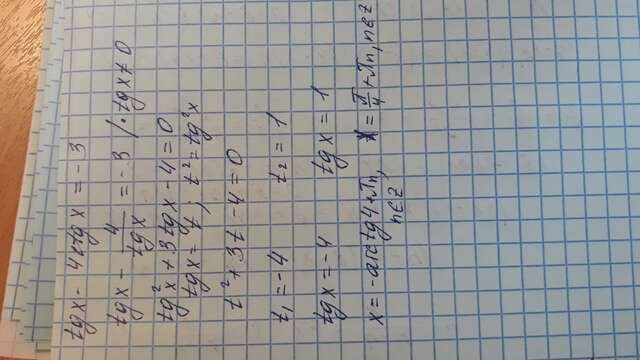 tgx - 4ctgx = -3
tgx - 4/tgx = -3 /·tgx≠0
tg²x + 3tgx - 4 = 0
tgx = t; t² = tg²x
t² + 3t - 4 = 0
t₁ = -4 t₂ = 1
tgx = -4 tgx = 1
x = -arctg4 + πn, n∈Z x = π/4 + πn, n∈Z